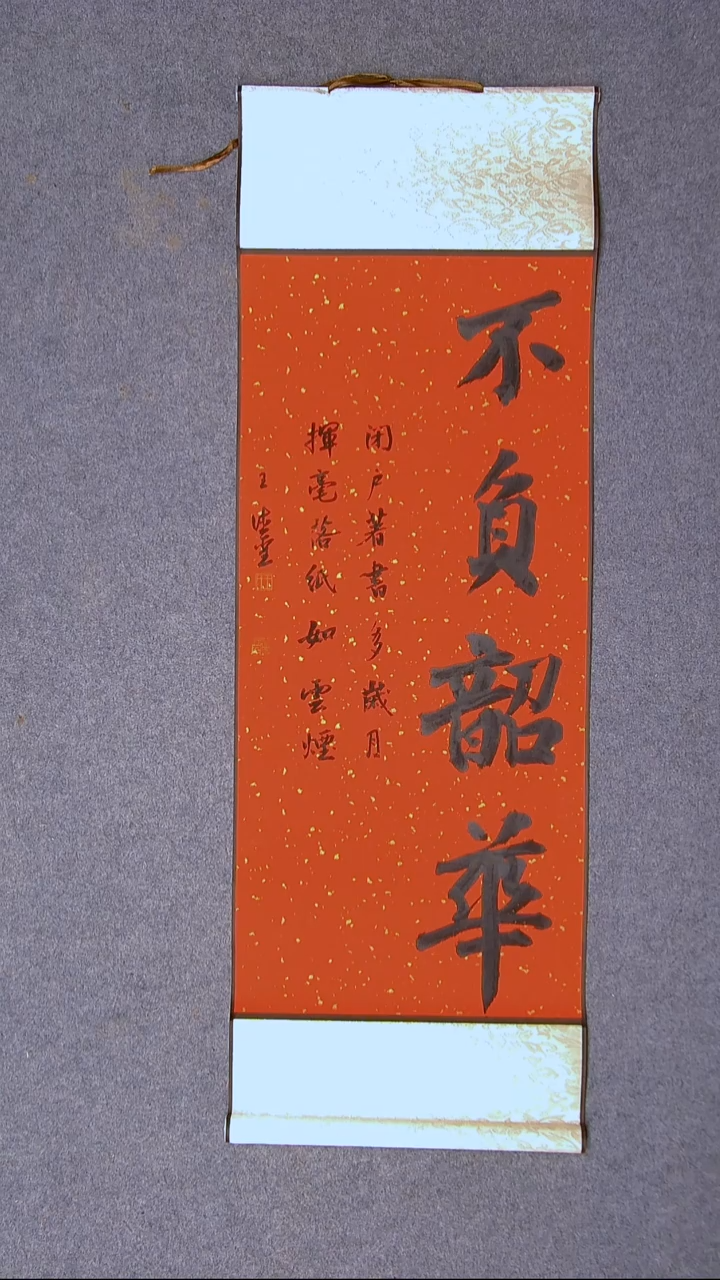 不負韶華
闭户著書多歲月
揮毫落紙如雲煙
王